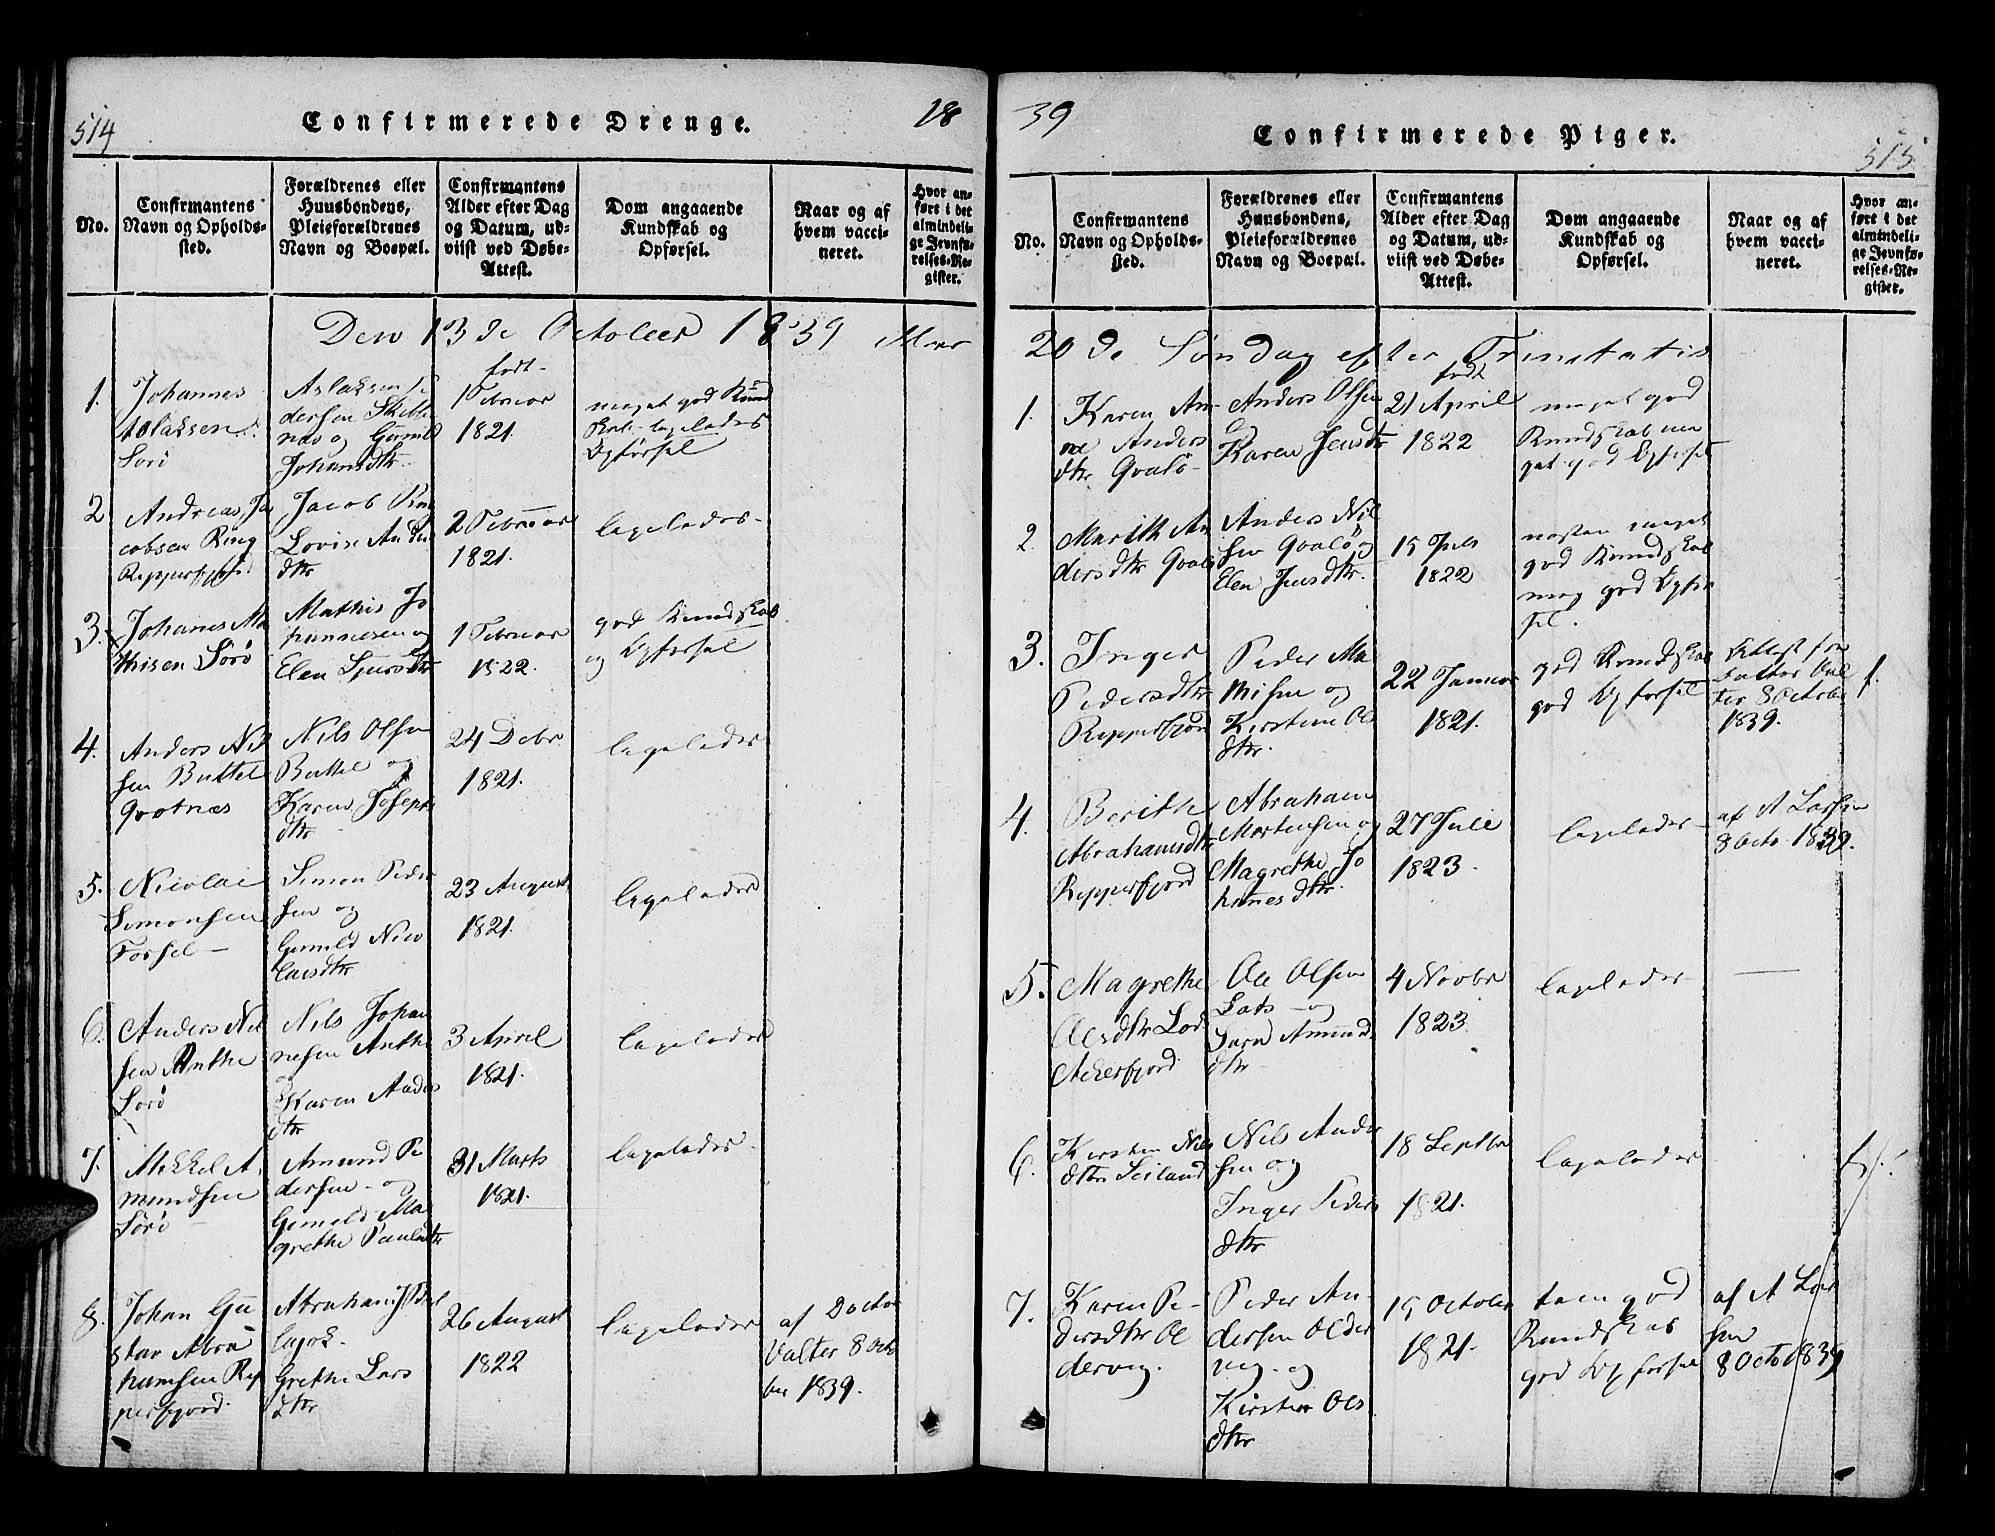 514
Confirmerede Drenge.
18
No.
Confirmantens
Navn og Opholds-
sted.
Forældrenes eller
Huusbondens,
Pleieforældrenes
Navn og Boepæl.
Confirmantens
Alder efter Dag
og Datum, ud-
viist ved Døbe-
Attest.
Dom angaaende
Kundskab og
Opførsel.
Naar og af
hvem vacci-
neret.
Hvor an-
ført i det
almindeli-
ge Jevnfø-
relses-Re-
gister.
Den 13de October 1839
1.
Johannes
Aslaksen
Sørø
Aslaksen
dersen
og Gunild
Johansdtr.
født
1 Februar
1821.
meget god Kund
skab
Opførsel
2
Andreas Ja
cobsen Ring
Repperfjord
Jacob
Lovise Anders
dtr
2 Februar
1821.
ligeledes
3.
Johanes Ma
thisen Sørø
Mathis Jo
hannesen og
Elen Sjursdtr
1 Februar
1822.
god Kundskab
og Opførsel
4.
Anders Nil
sen Buttel
Qvotnæs
Nils Olsen
Buttel og
Karen Joseph
dtr
24 Debr
1821.
ligeledes
5.
Nicolai
Simonsen
Forsøl
Simon Peder
sen og
Gunild Nico
laisdtr
23 August
1821.
ligeledes
6.
Anders Nil
sen Anthe
Sørø
Nils Johan
nesen Anthe
Karen Anders
dtr
3 April
1821.
ligeledes
7.
Mikkel A
mundsen
Sørø
Amund Pe
dersen og
Gunild Ma
grethe Paulsdtr
31 Marts
1821.
ligeledes
8.
Johan Gu
stav Abra
hamsen Rep
perfjord.
Abraham
Grethe Lars
dtr
26 August
1822
ligeledes
af Doctor
Valter 8 Octo
ber 1839.
39
Confirmerede Piger.
515
No.
Confirmantens
Navn og Opholds-
sted.
Forældrenes eller
Huusbondens,
Pleieforældrenes
Navn og Boepæl.
Confirmantens
Alder efter Dag
og Datum, ud-
viist ved Døbe-
Attest.
Dom angaaende
Kundskab og
Opførsel.
Naar og af
hvem vacci-
neret.
Hvor an-
ført i det
almindeli-
ge Jevnfø-
relses-Re-
gister.
20de Søndag efter Trinitatis
1.
Karen An-
ne Anders
dtr Qvalø
Anders Olsen
og
Karen Jensdtr
født
21 April
1822
meget god
Kundskab me
get god Opførsel
2.
Marith An
dersdtr Qvalø
Anders Nil
sen Qvalø og
Elen Jensdtr.
15 Juli
1822
næsten meget
god Kundskab
meg god Opfør
sel.
3.
Inger
Pedersdtr
Repperfjord
Peder Ma
thisen og
Kirstine Ols
dtr.
22 Januar
1821.
god Kundskab
god Opførsel
Attest fra
Doctor Val
ter 8 Octob
1839.
4.
Berith
Abrahamsdtr
Repperfjord
Abraham
Mortensen og
Magrethe Jo
hannesdtr.
27 Juli
1823.
ligeledes
af A Larsen
8 Octo 1839.
5.
Magrethe
Olesdtr
Ackerfjord
Ole Olsen
og
Sara Amund
dtr
4 Novbr
1823
ligeledes
6.
Kirsten Nils
dtr Seiland
Nils Ander
sen og
Inger Peders
dtr
18 Septbr
1821.
ligeledes
7.
Karen Pe-
dersdtr Ol
dervig.
Peder An-
dersen Older
vig og
Kirstine Ols
dtr
19 October
1821.
god
Kundskab
god Opførsel
af A Lar
sen
8 Octo 1839